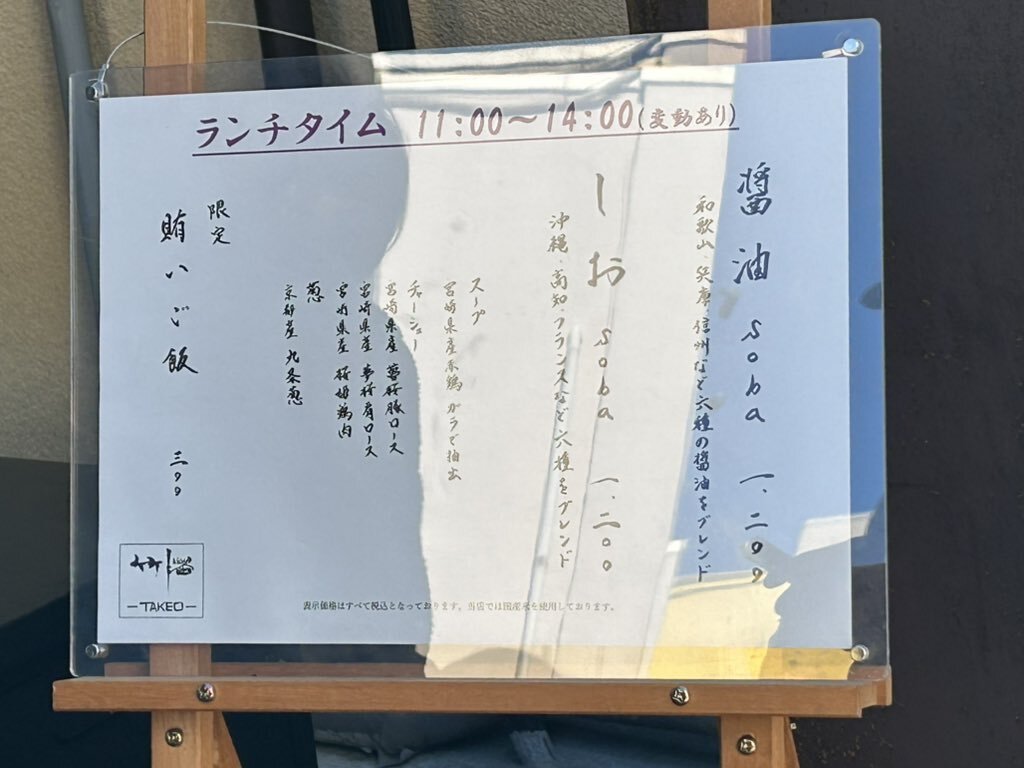 ランチタイム 11:00〜14:00(変動あり)
醤油 soba 一、二００
和歌山、兵庫、信州など六種の醤油をブレンド
しお soba 一、二００
沖縄、高知、フランスなど六種をブレンド
スープ
宮崎県産赤鶏ガラで抽出
チャーシュー
宮崎県産 夢桜豚ロース
宮崎県産 夢桜肩ロース
宮崎県産 桜姫鶏肉
葱
京都産 九条葱
限定
賄いご飯 三００
TAKEO
表示価格はすべて税込となっております。当店では国産米を使用しております。